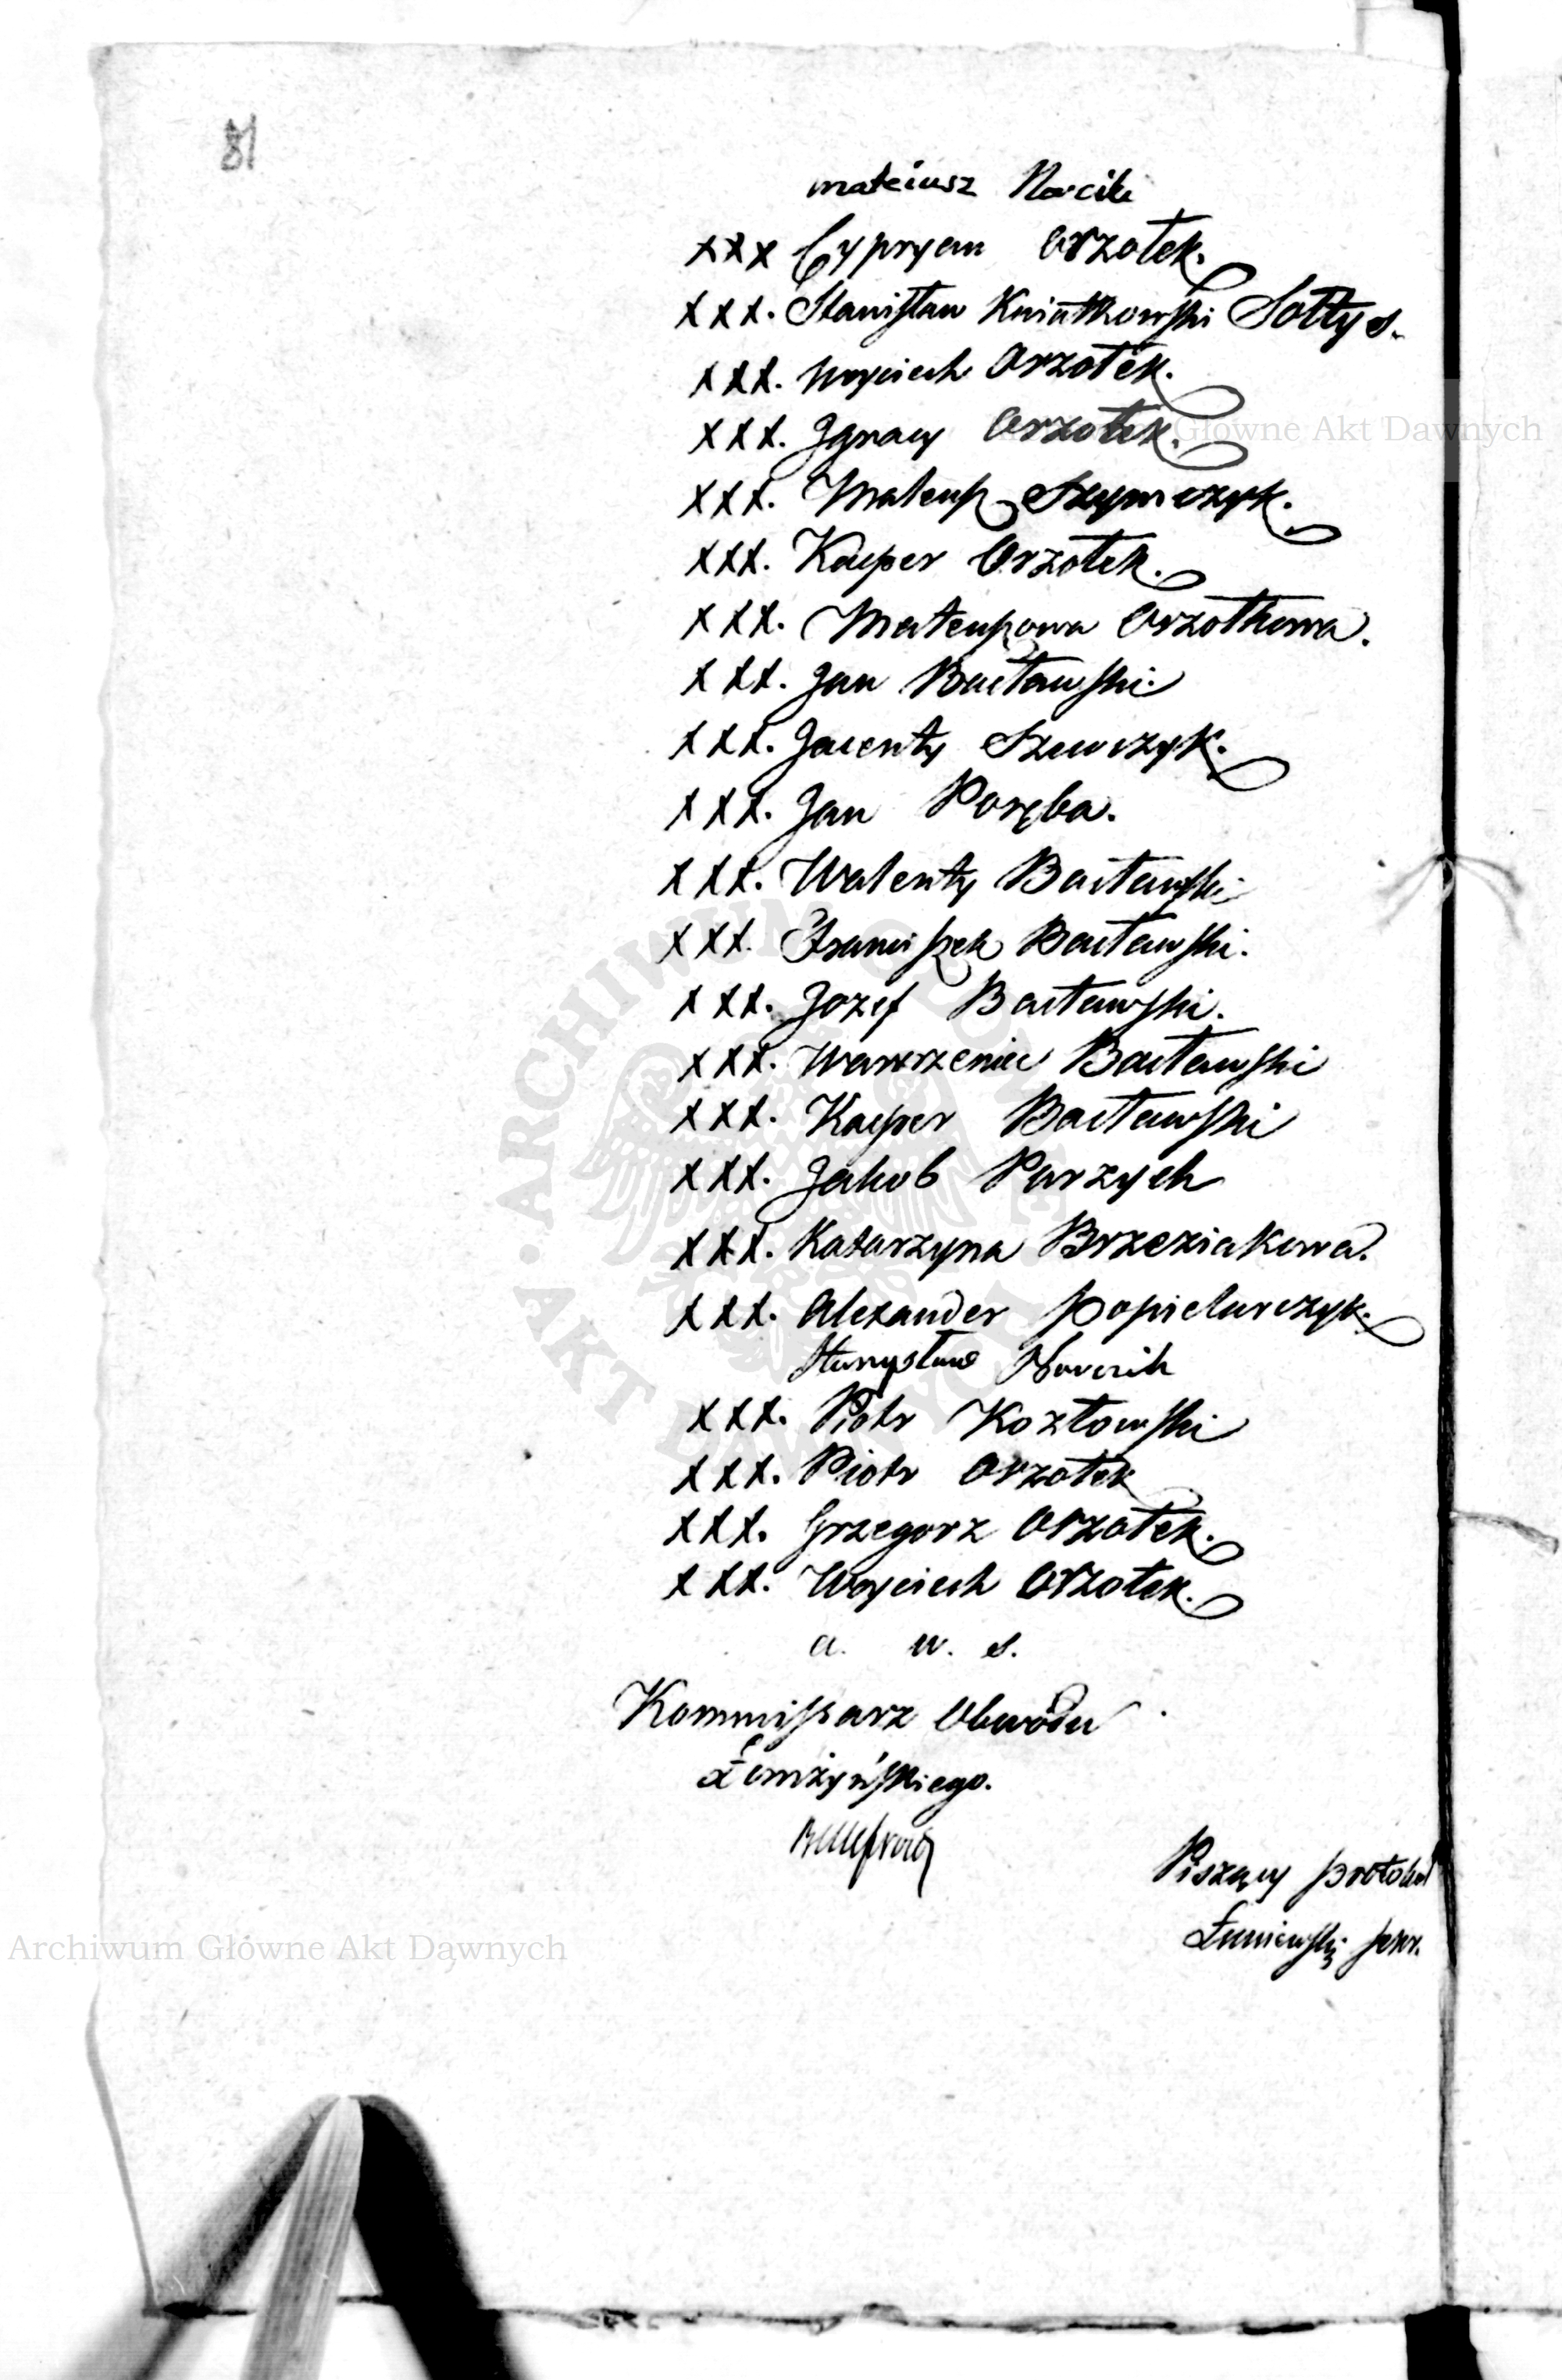 81
mateiusz Narcik
xxx Cypryan Orzołek.
xxx. Stanisław Kwiatkowski Sołtys.
xxx. Woyciech Orzołek.
xxx. Jgnacy Orzołek.
Główne Akt Dawnych
xxx. Mateusz Szymczyk.
xxx. Kacper Orzołek.
xxx. Mateuszowa Orzołkowa.
xxx. Jan Bacławski
xxx. Jacenty Szewczyk.
xxx. Jan Poręba.
xxx. Walenty Bacławski
xxx. Franciszek Bacławski.
xxx. Jozef Bacławski.
xxx. Wawrzeniec Bacławski
xxx. Kacper Bacławski
xxx. Jakob Parzych
xxx. Katarzyna Brzeziakowa.
xxx. Alexander Popielarczyk.
Stanysław
xxx. Piotr Kozłowski
xxx. Piotr Orzołek
xxx. Grzegorz Orzołek.
xxx. Woyciech Orzołek.
a. u. s.
Kommissarz Obwodu
Łomżyńskiego.
Piszący protokuł
Łuniewski
Archiwum Główne Akt Dawnych
ARCHIWUM GŁÓWNE AKT DAWNYCH